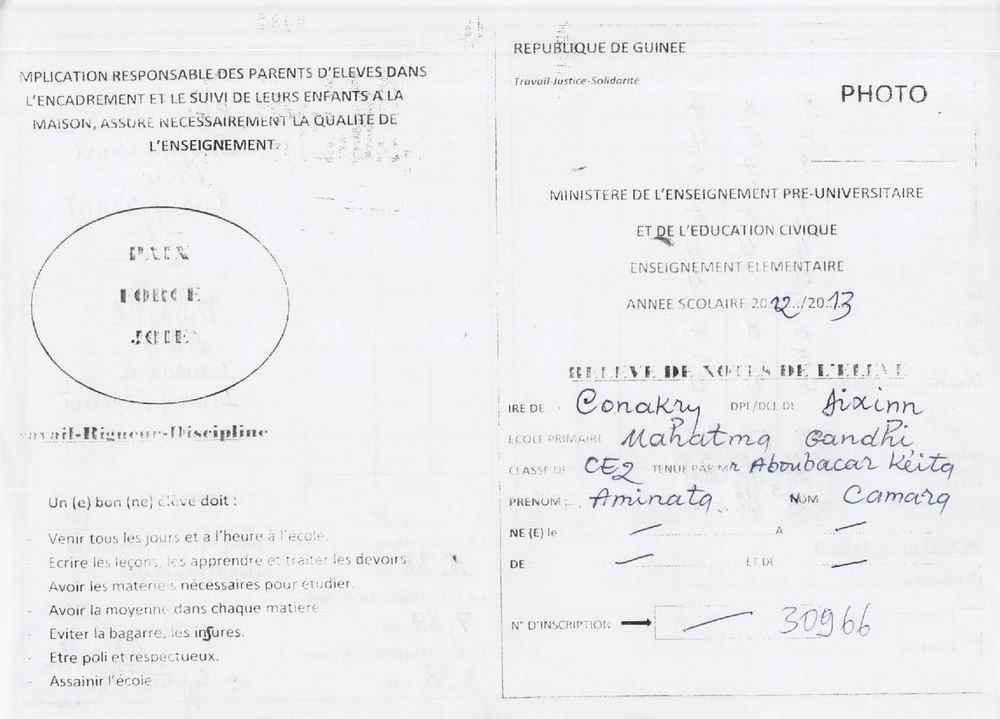 MPLICATION RESPONSABLE DES PARENTS D'ELEVES DANS
L'ENCADREMENT ET LE SUIVI DE LEURS ENFANTS A LA
MAISON, ASSURE NECESSAIREMENT LA QUALITE DE
L'ENSEIGNEMENT.
PAIX
FORCE
JOIE
avail-Rigueur-Discipline
Un (e) bon (ne) élève doit :
- Venir tous les jours et à l'heure à l'école.
- Ecrire les leçons, les apprendre et traiter les devoirs
- Avoir les matériels nécessaires pour étudier.
- Avoir la moyenne dans chaque matière
- Eviter la bagarre, les injures.
- Etre poli et respectueux.
- Assainir l'école
REPUBLIQUE DE GUINEE
Travail-Justice-Solidarité
PHOTO
MINISTERE DE L'ENSEIGNEMENT PRE-UNIVERSITAIRE
ET DE L'EDUCATION CIVIQUE
ENSEIGNEMENT ELEMENTAIRE
ANNEE SCOLAIRE 2012../20.13
RELEVE DE NOTES DE L'ELEVE
IRE DE Conakry DPE/DCE DE Dixinn
ECOLE PRIMAIRE Mahatma Gandhi
CLASSE DE CE2 TENUE PAR Mr Aboubacar Kéita
PRENOM : Aminata NOM Camara
NE (E) le — A —
DE — ET DE —
N° D'INSCRIPTION → — 30966